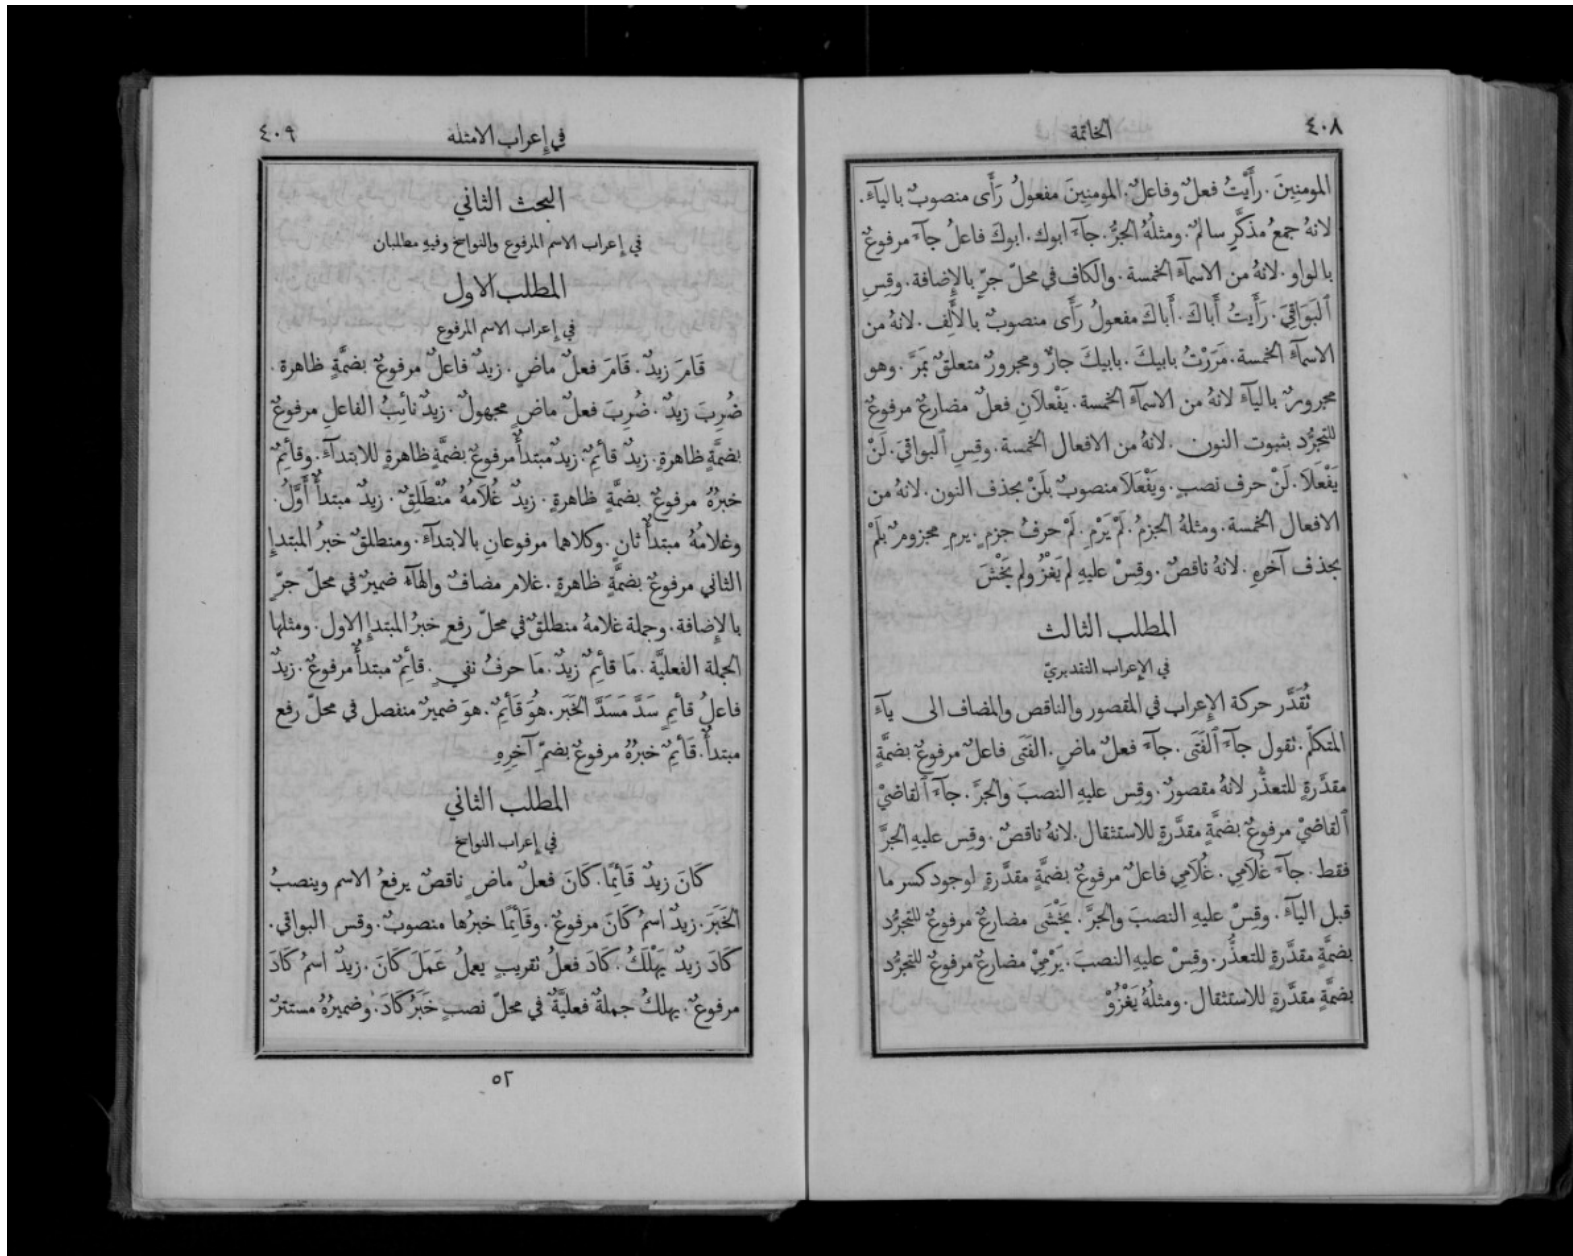 ٤٠٨
الخاتمة
المومنِينَ. رأَيْتُ فعلٌ وفاعلٌ. المومنِينَ مفعولُ رَأَى منصوبٌ بالياءِ.
لانهُ جمعُ مذكَّرٍ سالمٌ. ومثلهُ الجرُّ. جآءَ ابوك. ابوكَ فاعلُ جآءَ مرفوعٌ
بالواو. لانهُ من الاسمآءِ الخمسة. والكاف في محلّ جرٍّ بالإِضافة. وقِسِ
ٱلبَوَاقِيَ. رَأَيتُ أَباكَ. أَباكَ مفعولُ رَأَى منصوبٌ بالأَلِف. لانهُ من
الاسمآءِ الخمسة. مَرَرْتُ بابيكَ. بابيكَ جارٌّ ومجرورٌ متعلقٌ بمَرَّ. وهو
مجرورٌ باليآءِ لانهُ من الاسمآءِ الخمسة. يَفْعلاَنِ فعلٌ مضارعٌ مرفوعٌ
للتجرُّد بثبوت النون. لانهُ من الافعال الخمسة. وقِسِ ٱلبواقيَ. لَنْ
يَفْعَلاَ. لَنْ حرف نصبٍ. ويَفْعَلاَ منصوبٌ بلَنْ بحذف النون. لانهُ من
الافعال الخمسة. ومثلهُ الجزمُ. لَمْ يَرْمِ. لَمْ حرفُ جزمٍ. يرمِ مجزومٌ بلَمْ
بحذف آخرهِ. لانهُ ناقصٌ. وقِسْ عليهِ لم يَغْزُ ولم يَخْشَ
المطلب الثالث
في الإِعراب التقديريّ
تُقَدَّر حركة الإِعراب في المقصور والناقص والمضاف الى يآءِ
المتكلّم. تقول جآءَ ٱلفَتَى. جآءَ فعلٌ ماضٍ. الفَتَى فاعلٌ مرفوعٌ بضمَّةٍ
مقدَّرةٍ للتعذُّر لانهُ مقصورٌ. وقِس عليهِ النصبَ والجرَّ. جآءَ ٱلقاضيْ
ٱلقاضيْ مرفوعٌ بضمَّةٍ مقدَّرةٍ للاستثقال. لانهُ ناقصٌ. وقِس عليهِ الجرَّ
فقط. جآءَ غُلاَمِي. غُلاَمِي فاعلٌ مرفوعٌ بضمَّةٍ مقدَّرةٍ لوجود كسر ما
قبل اليآءِ. وقِسْ عليهِ النصبَ والجرَّ. يَخْشَى مضارعٌ مرفوعٌ للتجرُّد
بضمَّةٍ مقدَّرةٍ للتعذُّر. وقِسْ عليهِ النصبَ. يَرْمِيْ مضارعٌ مرفوعٌ للتجرُّد
بضمَّةٍ مقدَّرةٍ للاستثقال. ومثلُهُ يَغْزُوْ
في إِعراب الامثلة
٤٠٩
البحث الثاني
في إِعراب الاسم المرفوع والنواسخ وفيهِ مطلبان
المطلب الاول
في إِعراب الاسم المرفوع
قَامَ زيدٌ. قَامَ فعلٌ ماضٍ. زيدٌ فاعلٌ مرفوعٌ بضمَّةٍ ظاهرة.
ضُرِبَ زيدٌ. ضُرِبَ فعلٌ ماضٍ مجهولٌ. زيدٌ نائِبُ الفاعلِ مرفوعٌ
بضمَّةٍ ظاهرةٍ. زيدٌ قائِمٌ. زيدٌ مبتدأٌ مرفوعٌ بضمَّةٍ ظاهرةٍ للابتدآءِ. وقائِمٌ
خبرُهُ مرفوعٌ بضمَّةٍ ظاهرةٍ. زيدٌ غُلاَمُهُ مُنْطَلِقٌ. زيدٌ مبتدأٌ أَوَّلُ.
وغلامُهُ مبتدأٌ ثانٍ. وكلاهما مرفوعانِ بالابتدآءِ. ومنطلقٌ خبرُ المبتدإِ
الثاني مرفوعٌ بضمَّةٍ ظاهرةٍ. غلام مضافٌ والهآءُ ضميرٌ في محلّ جرٍّ
بالإِضافة. وجملة غلامهُ منطلقٌ في محلّ رفعٍ خبرُ المبتدإِ الاول. ومثلها
الجملة الفعليَّة. مَا قائِمٌ زيدٌ. مَا حرفُ نفيٍ. قائِمٌ مبتدأٌ مرفوعٌ. زيدٌ
فاعلُ قائِمٍ سَدَّ مَسَدَّ الخَبَر. هُوَ قَائِمٌ. هوَ ضميرٌ منفصل في محلّ رفع
مبتدأٌ. قَائِمٌ خبرُهُ مرفوعٌ بضمّ آخِرِهِ
المطلب الثاني
في إِعراب النواسخ
كَانَ زيدٌ قَائِمًا. كَانَ فعلٌ ماضٍ ناقصٌ يرفعُ الاسم وينصبُ
الخَبَرَ. زيدٌ اسمُ كَانَ مرفوعٌ. وقَائِمًا خبرُها منصوبٌ. وقس البواقي.
كَادَ زيدٌ يَهْلَكُ. كَادَ فعلُ تقريبٍ يعملُ عَمَلَ كَانَ. زيدٌ اسمُ كَادَ
مرفوعٌ. يهلكُ جملةٌ فعليَّةٌ في محلّ نصبٍ خَبَرُ كَادَ. وضميرُهُ مستترٌ
٥٢